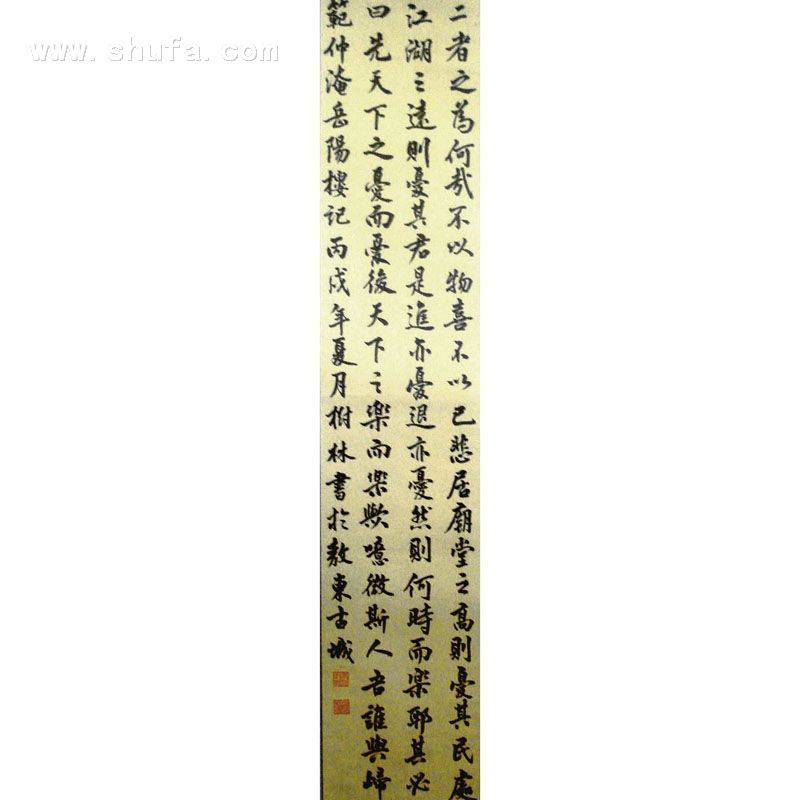 www.shufa.com
二者之為何哉不以物喜不以己悲居廟堂之高則憂其民處
江湖之遠則憂其君是進亦憂退亦憂然則何時而樂耶其必
曰先天下之憂而憂後天下之樂而樂歟噫微斯人吾誰與歸
範仲淹岳陽樓記丙戌年夏月樹林書於敖東古城